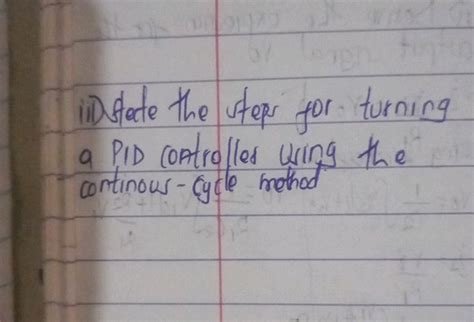 ii) state the steps for turning
a PID controlled using the
continous-cycle method